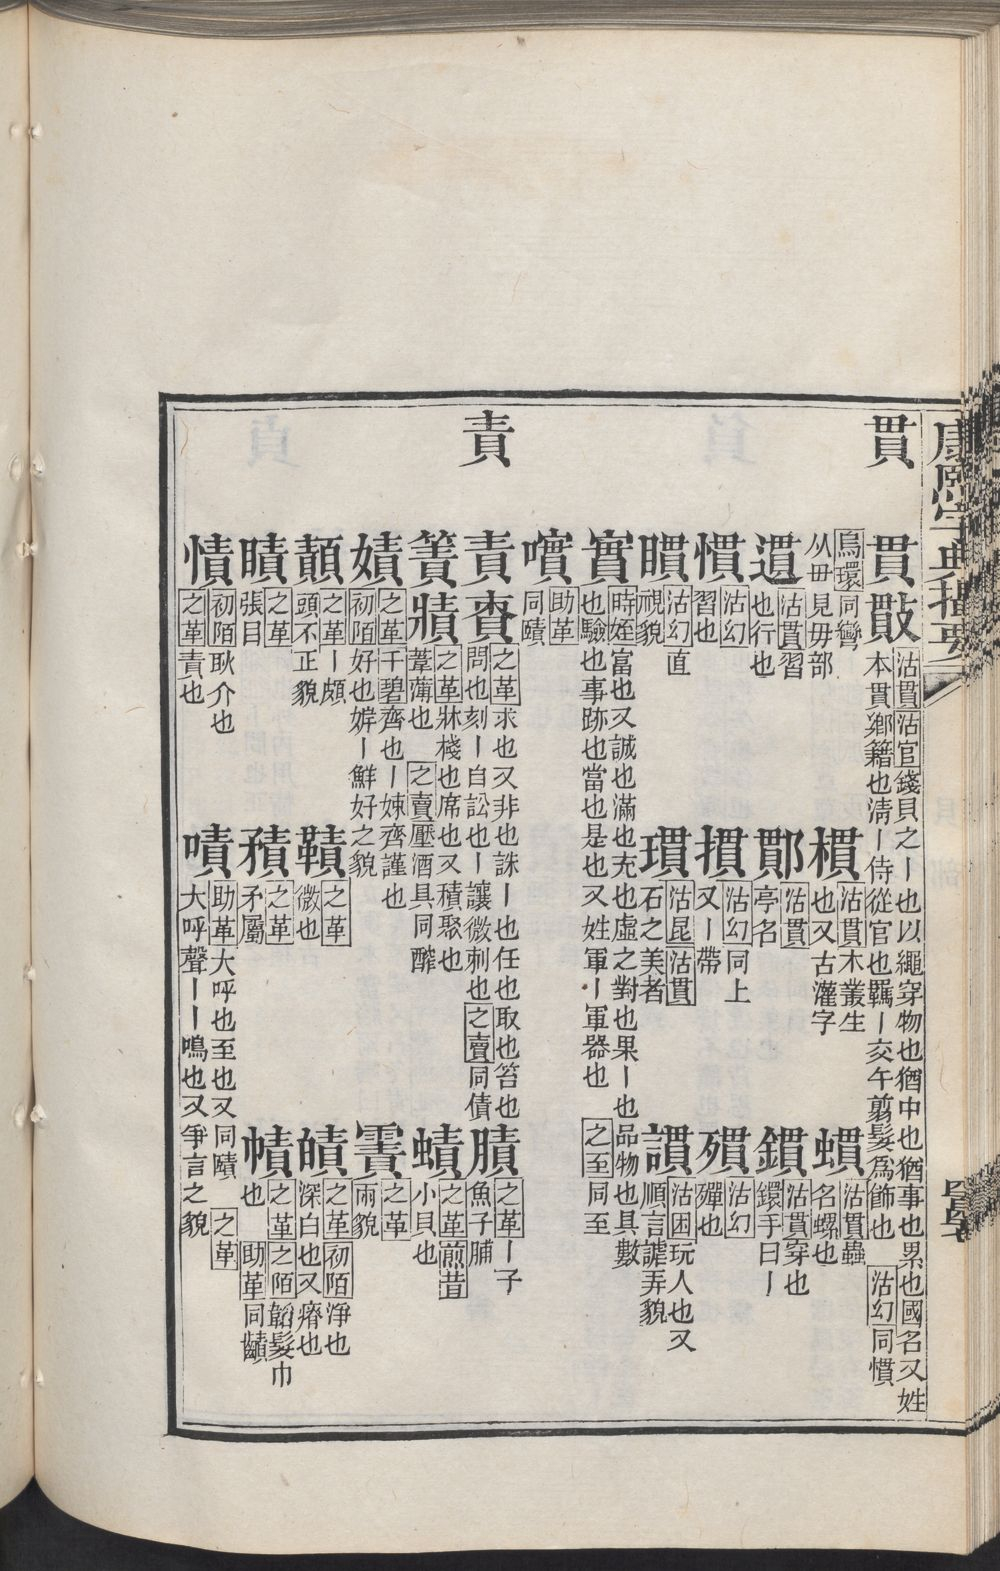 康熙字典撮要
貫
貫毌沽貫沽官錢貝之｜也以繩穿物也猶中也猶事也累也國名又姓
本貫鄉籍也淸｜侍從官也羈｜交午翦髮爲飾也沽幻同慣
烏環同彎
从毌見毋部
樌沽貫木叢生
也又古灌字
螺沽貫蟲
名螺也
遦沽貫習
也行也
鄳沽貫
亭名
鏆沽貫穿也
鐶手曰｜
慣沽幻
習也
摜沽幻同上
又｜帶
殨沽幻
殫也
瞶沽幻直
視貌
瑻沽昆沽貫
石之美者
謴沽困玩人也又
順言謔弄貌
實時姪富也又誠也滿也充也虛之對也果｜也品物也具數
也驗也事跡也當也是也又姓軍｜軍器也之至同至
嘳助革
同賾
責
責賚之革求也又非也誅｜也任也取也笞也
問也刻｜自訟也｜讓微刺也之賣同債
膭之革｜子
魚子脯
簀牀之革牀棧也席也又積聚也
葦薄也之賣壓酒具同醡
蟦之革煎昔
小貝也
嫧之革千碧齊也｜娕齊謹也
初陌好也婩｜鮮好之貌
霣之革
雨貌
顚之革｜頗
頭不正貌
鞼之革
微也
皟之革初陌淨也
深白也又瘠也
瞔之革
張目
矠之革
矛屬
幘之革之陌韜髮巾
也助革同齰
憒初陌耿介也
之革責也
嘖助革大呼也至也又同賾之革
大呼聲｜｜鳴也又爭言之貌